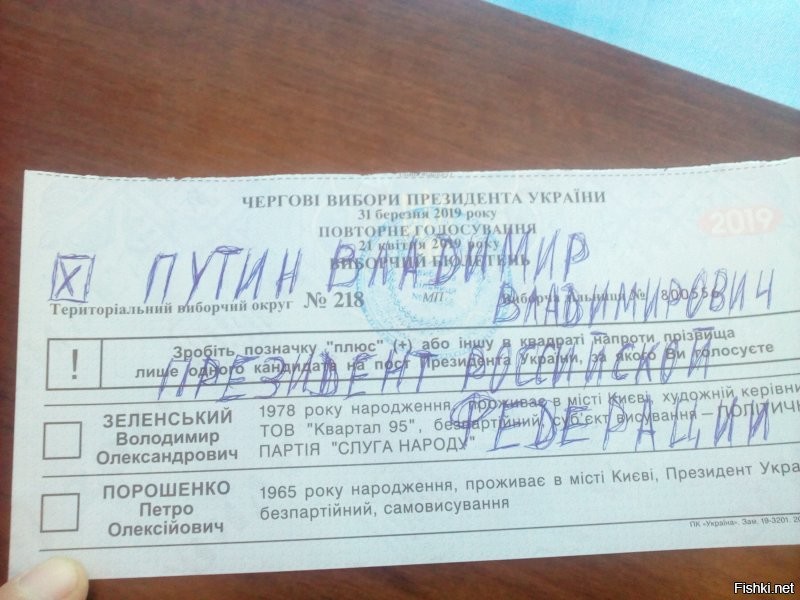 ЧЕРГОВІ ВИБОРИ ПРЕЗИДЕНТА УКРАЇНИ
31 березня 2019 року
ПОВТОРНЕ ГОЛОСУВАННЯ
21 квітня 2019 року
ВИБОРЧИЙ БЮЛЕТЕНЬ
2019
X ПУТИН ВЛАДИМИР
ВЛАДИМИРОВИЧ
Територіальний виборчий округ № 218 МП Виборча дільниця №
ПРЕЗИДЕНТ РОССИЙСКОЙ
ФЕДЕРАЦИИ
! Зробіть позначку "плюс" (+) або іншу в квадраті напроти прізвища
лише одного кандидата на пост Президента України, за якого Ви голосуєте
ЗЕЛЕНСЬКИЙ
Володимир
Олександрович
1978 року народження, проживає в місті Києві, художній керівни
ТОВ "Квартал 95", безпартійний, суб'єкт висування – ПОЛІТИЧН
ПАРТІЯ "СЛУГА НАРОДУ"
ПОРОШЕНКО
Петро
Олексійович
1965 року народження, проживає в місті Києві, Президент Укра
безпартійний, самовисування
ПК «Україна». Зам. 19-3201. 20
Fishki.net